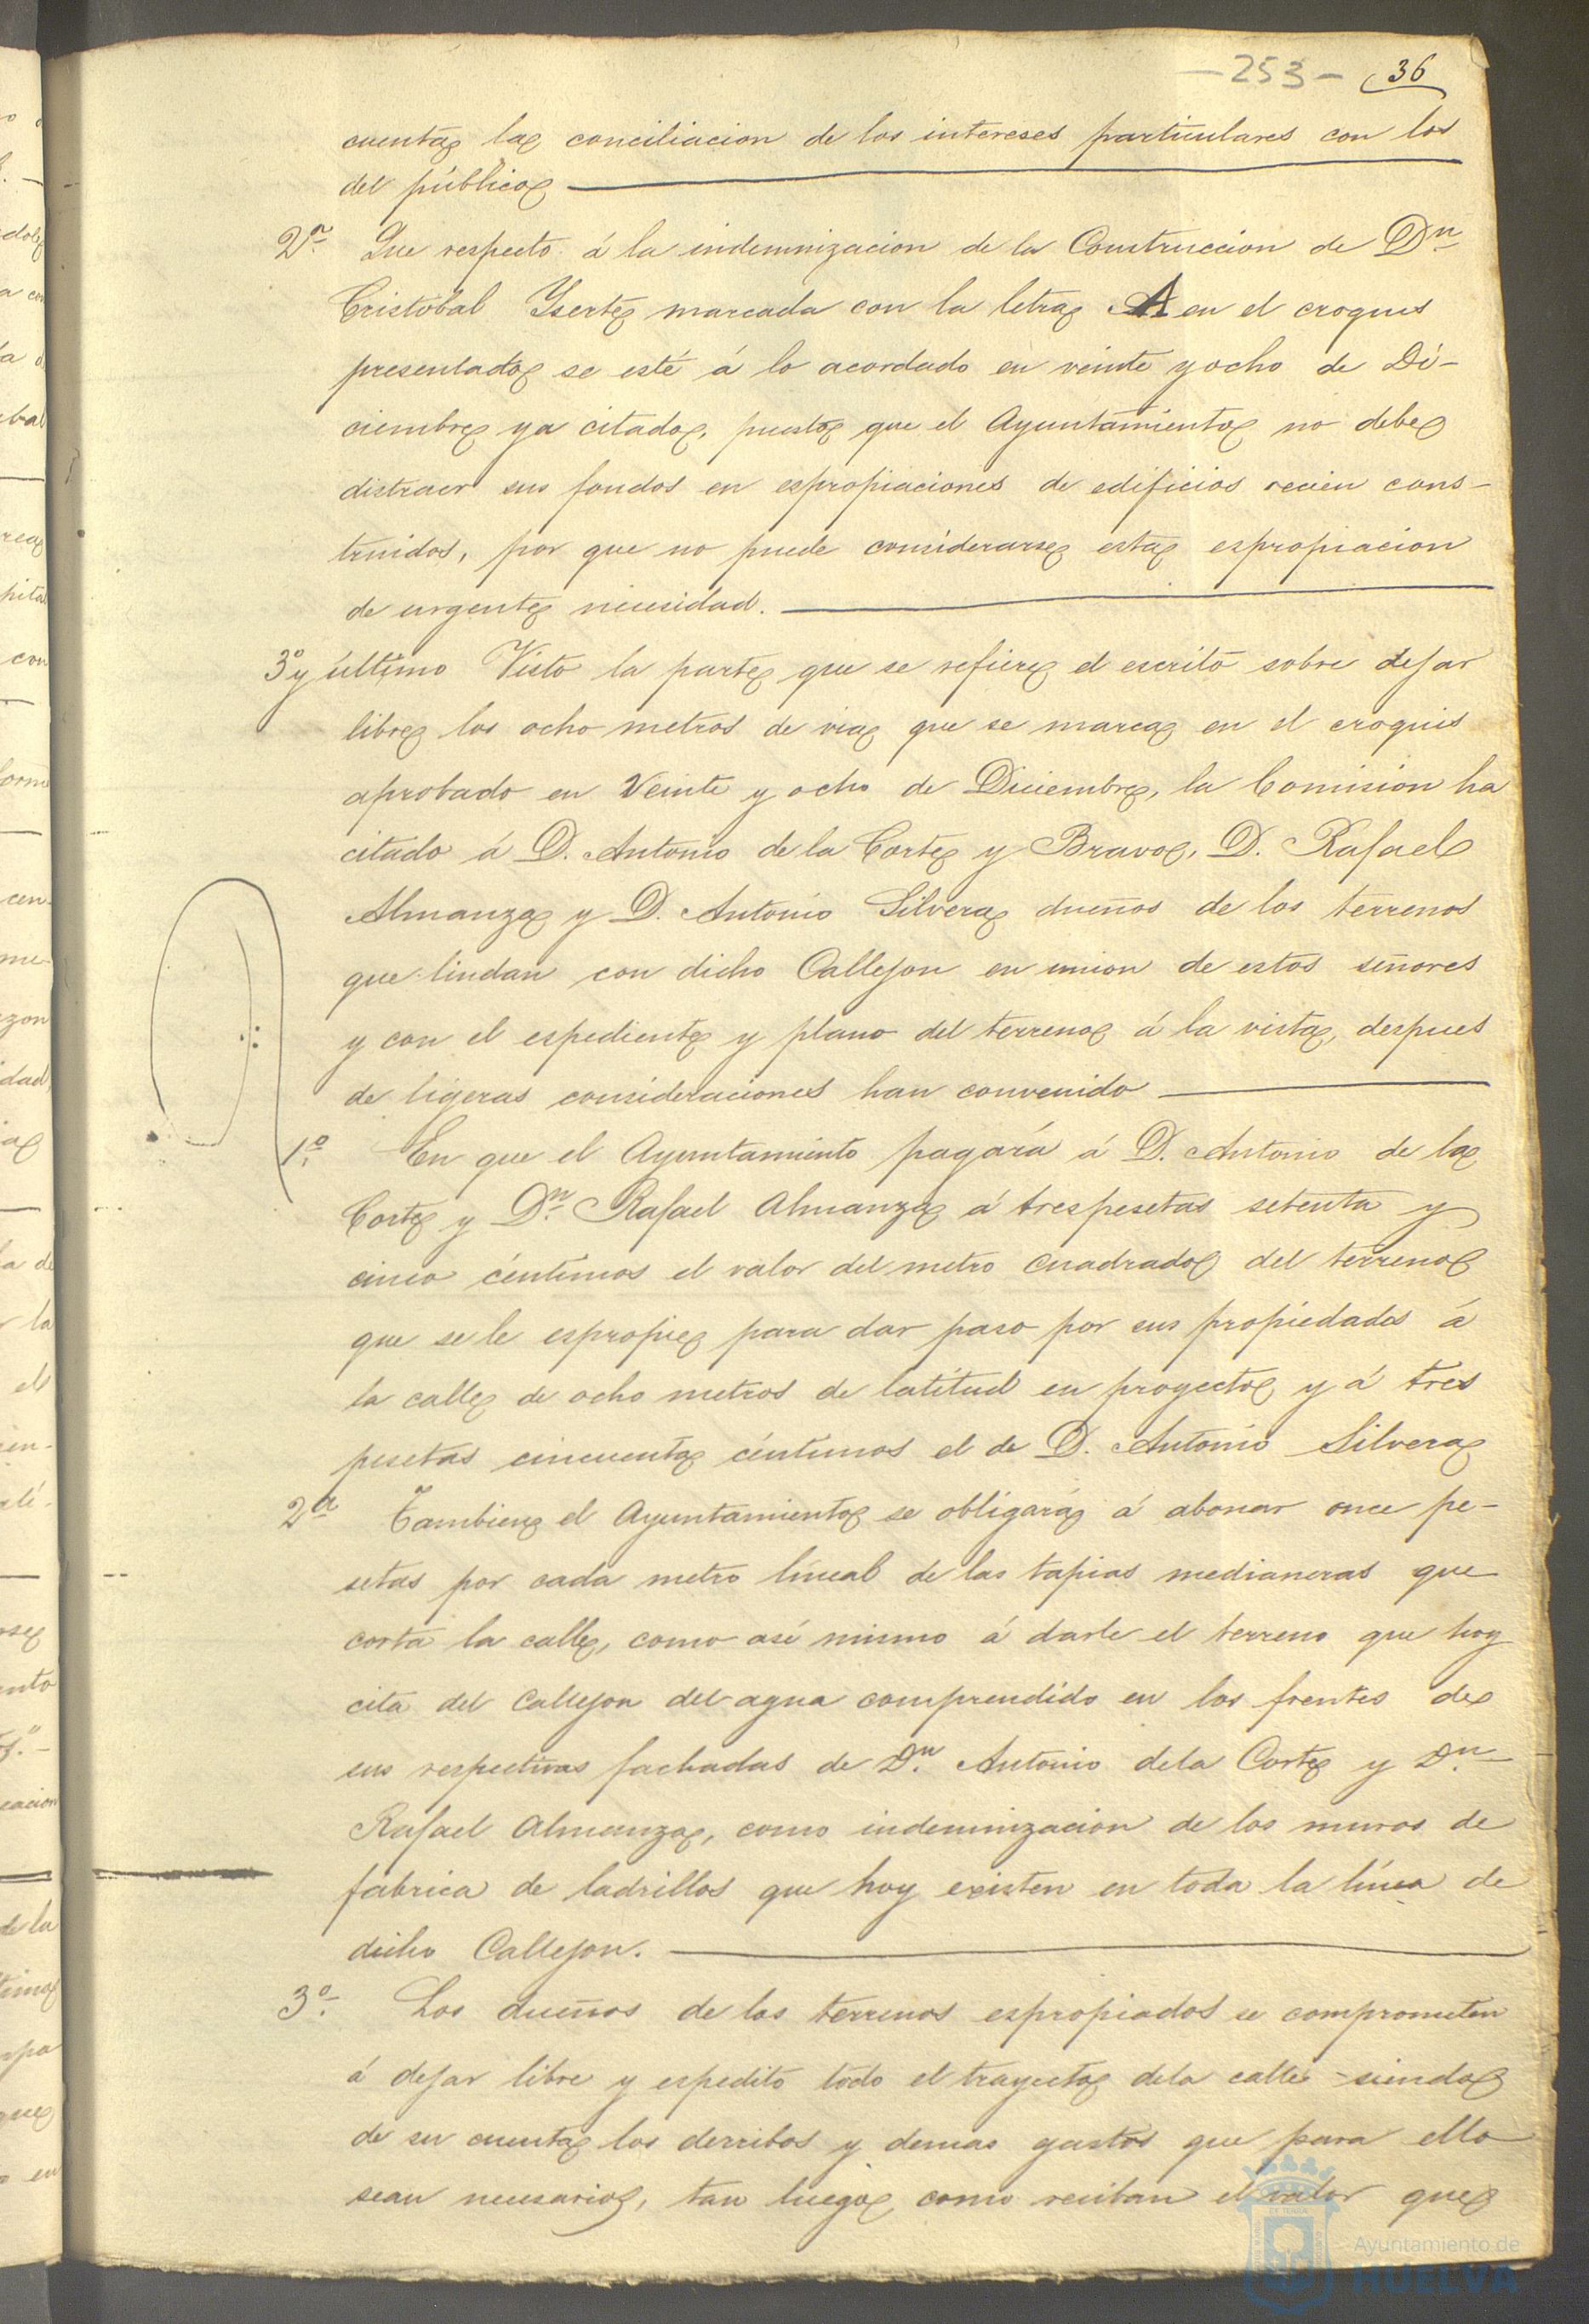 — 253 — 36
cuenta la conciliacion de los intereses particulares con los
del público
2ª Que respecto á la indemnizacion de la Construccion de Dn
Cristobal Yserte marcada con la letra A en el croquis
presentado se esté á lo acordado en veinte y ocho de Di-
ciembre ya citado, puesto que el Ayuntamiento no debe
distraer sus fondos en espropiaciones de edificios recien cons-
truidos, por que no puede considerarse esta espropiacion
de urgente necesidad.
3º y último Visto la parte que se refiere el escrito sobre dejar
libre los ocho metros de via que se marca en el croquis
aprobado en Veinte y ocho de Diciembre, la Comision ha
citado á D. Antonio de la Corte y Bravo, D. Rafael
Almanza y D. Antonio Silvera dueños de los terrenos
que lindan con dicho Callejon en union de estos señores
y con el espediente y plano del terreno á la vista, despues
de ligeras consideraciones han convenido
1º En que el Ayuntamiento pagará á D. Antonio de la
Corte y Dn Rafael Almanza á tres pesetas setenta y
cinco céntimos el valor del metro cuadrado del terreno
que se le espropie para dar paso por sus propiedades á
la calle de ocho metros de latitud en proyecto y á tres
pesetas cincuenta céntimos el de D. Antonio Silvera
2ª Tambien el Ayuntamiento se obligará á abonar once pe-
setas por cada metro lineal de las tapias medianeras que
corta la calle, como asi mismo á darle el terreno que hoy
cita del Callejon del agua comprendido en los frentes de
sus respectivas fachadas de Dn. Antonio dela Corte y Dn.
Rafael Almanza, como indemnizacion de los muros de
fabrica de ladrillos que hoy existen en toda la línea de
dicho Callejon.
3º. Los dueños de los terrenos espropiados se comprometen
á dejar libre y espedito todo el trayecto dela calle siendo
de su cuenta los derribos y demas gastos que para ello
sean necesarios, tan luego como reciban el valor que
Ayuntamiento de
HUELVA